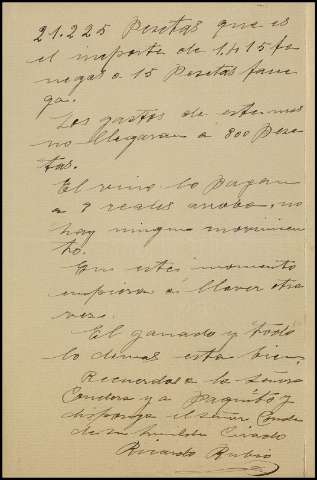 21.225 Pesetas que es
el importe de 1,415 fa
negas a 15 Pesetas fane
ga.
Los gastos de este mes
no llegaran a 800 pese
tas.
El vino lo pagan
a 9 reales arroba, no
hay ningun movimien
to.
En este momento
empieza á llover otra
vez.
El ganado y todo
lo demas esta bien.
Recuerdos a la Señora
Condesa y a Paquito y
disponga el señor Conde
de su humilde Criado
Ricardo Rubio